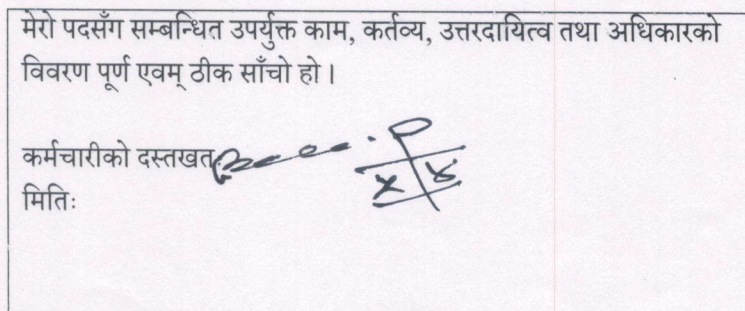 मेरो पदसँग सम्बन्धित उपर्युक्त काम, कर्तव्य, उत्तरदायित्व तथा अधिकारको
विवरण पूर्ण एवम् ठीक साँचो हो ।
कर्मचारीको दस्तखत
मितिः